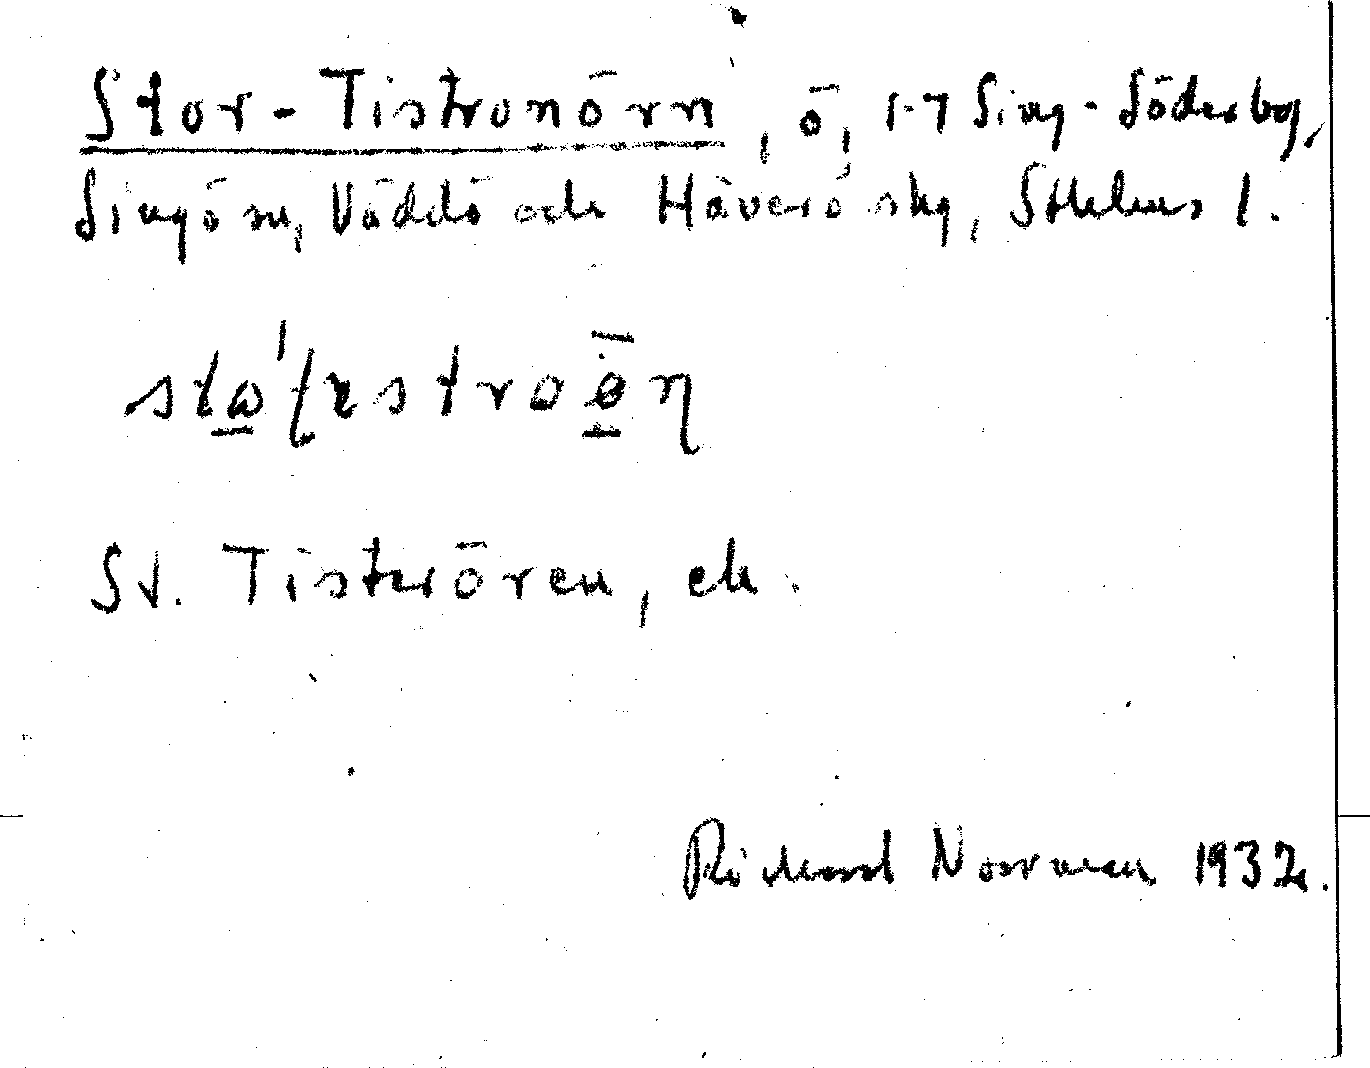 Stor-Tistronörn, ö, 1-7 Sing-Söderbog,
Singö sn, Väddö och Häverö skg, Sthlms l.
St. Tiströren, ek.
Richard Norrman 1932.